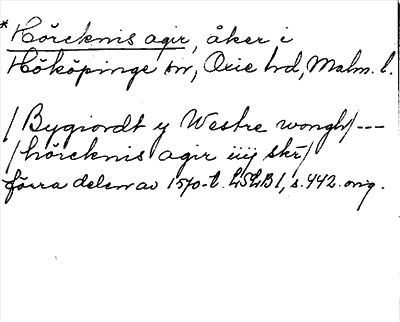 *Hörcknis agir, åker i
Hököpinge sn, Oxie hd, Malm. l.
/Bygiordt y Westre wongh/---
/hörcknis agir iiij skr/
förra delen av 1570-t. LSLB 1, s. 442. orig.